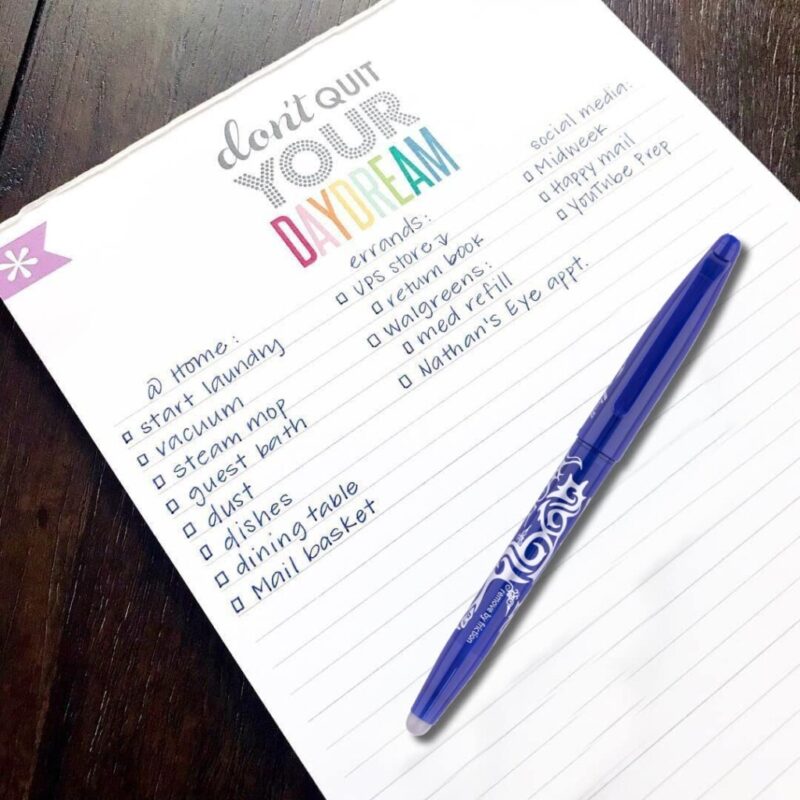 don't QUIT
YOUR
DAYDREAM
social media:
Midweek
Happy mail
YouTube Prep
errands:
UPS store
return book
Walgreens:
med refill
Nathan's Eye appt.
@ Home:
start laundry
vacuum
steam mop
guest bath
dust
dishes
dining table
Mail basket
remove by friction